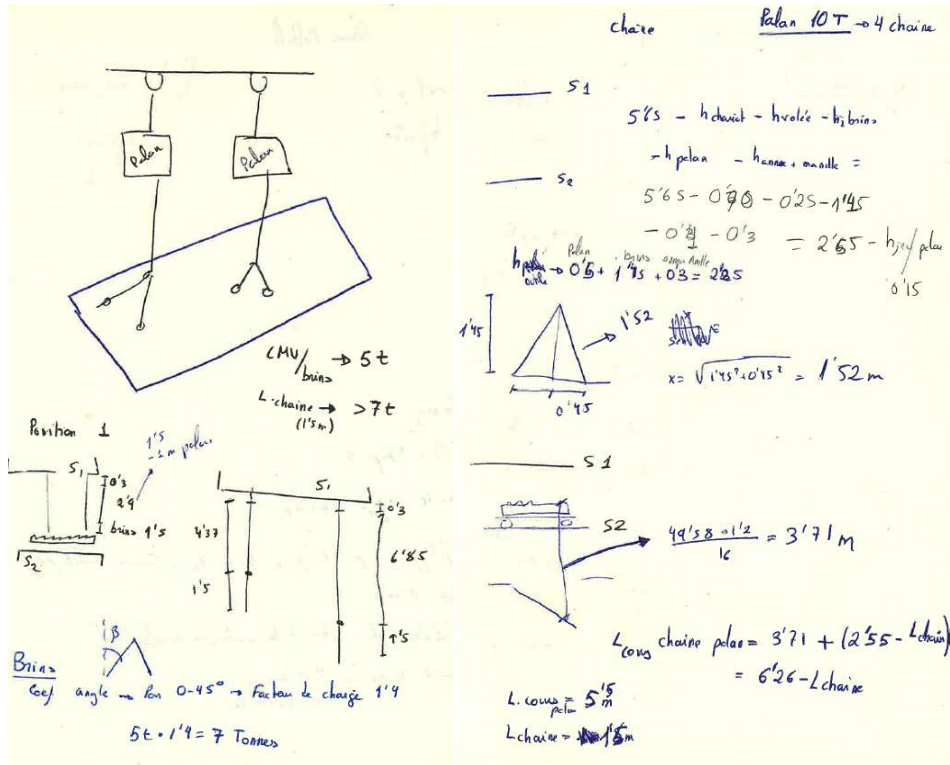 Palan
Palan
CMU/brins → 5t
L.chaine → >7t
(1'5m)
Position 1
1'5
S1
0'3
brins 1'5
S2
S1
4'37
1'5
0'3
6'85
1'5
β
Brins
Coef angle → Pour 0-45° → Facteur de charge 1'4
5t · 1'4 = 7 Tonnes
Chaine
Palan 10T → 4 chaine
S1
5'65 - h chariot - h volée - h brins
- h palan - h anneau + manille =
S2
5'65 - - 0'25 - 1'45
- - 0'3 = 2'55 - h palan
0'15
palan
brins
0'5 + 1'45 + 0'3 =
1'45
1'52
0'45
x = √1'45² + 0'45² = 1'52 m
S1
S2
49'58 · 1'2 / 16 = 3'71 m
L cours chaine palan = 3'71 + (2'55 - L chaine)
= 6'26 - L chaine
L. cours palan =
L chaine =